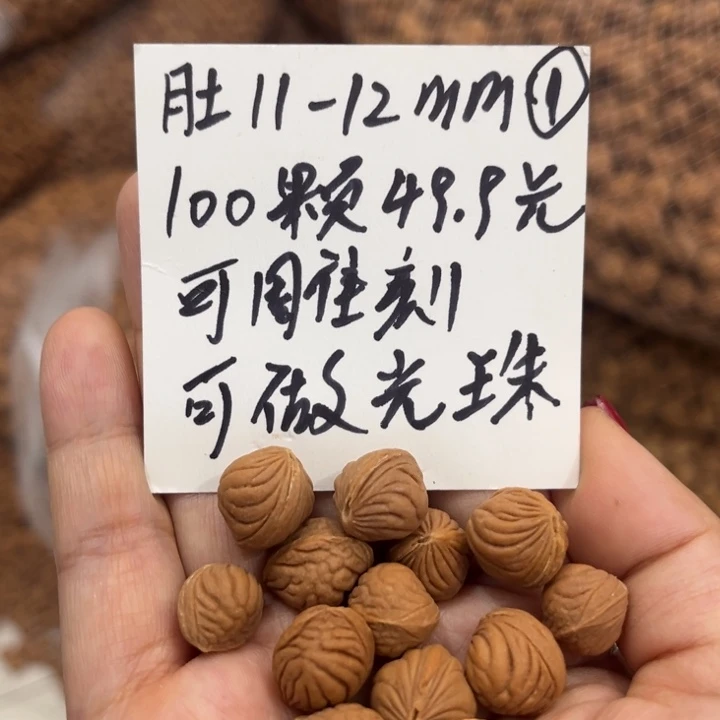 肚11-12mm①
100颗49.9元
可雕刻
可做光珠